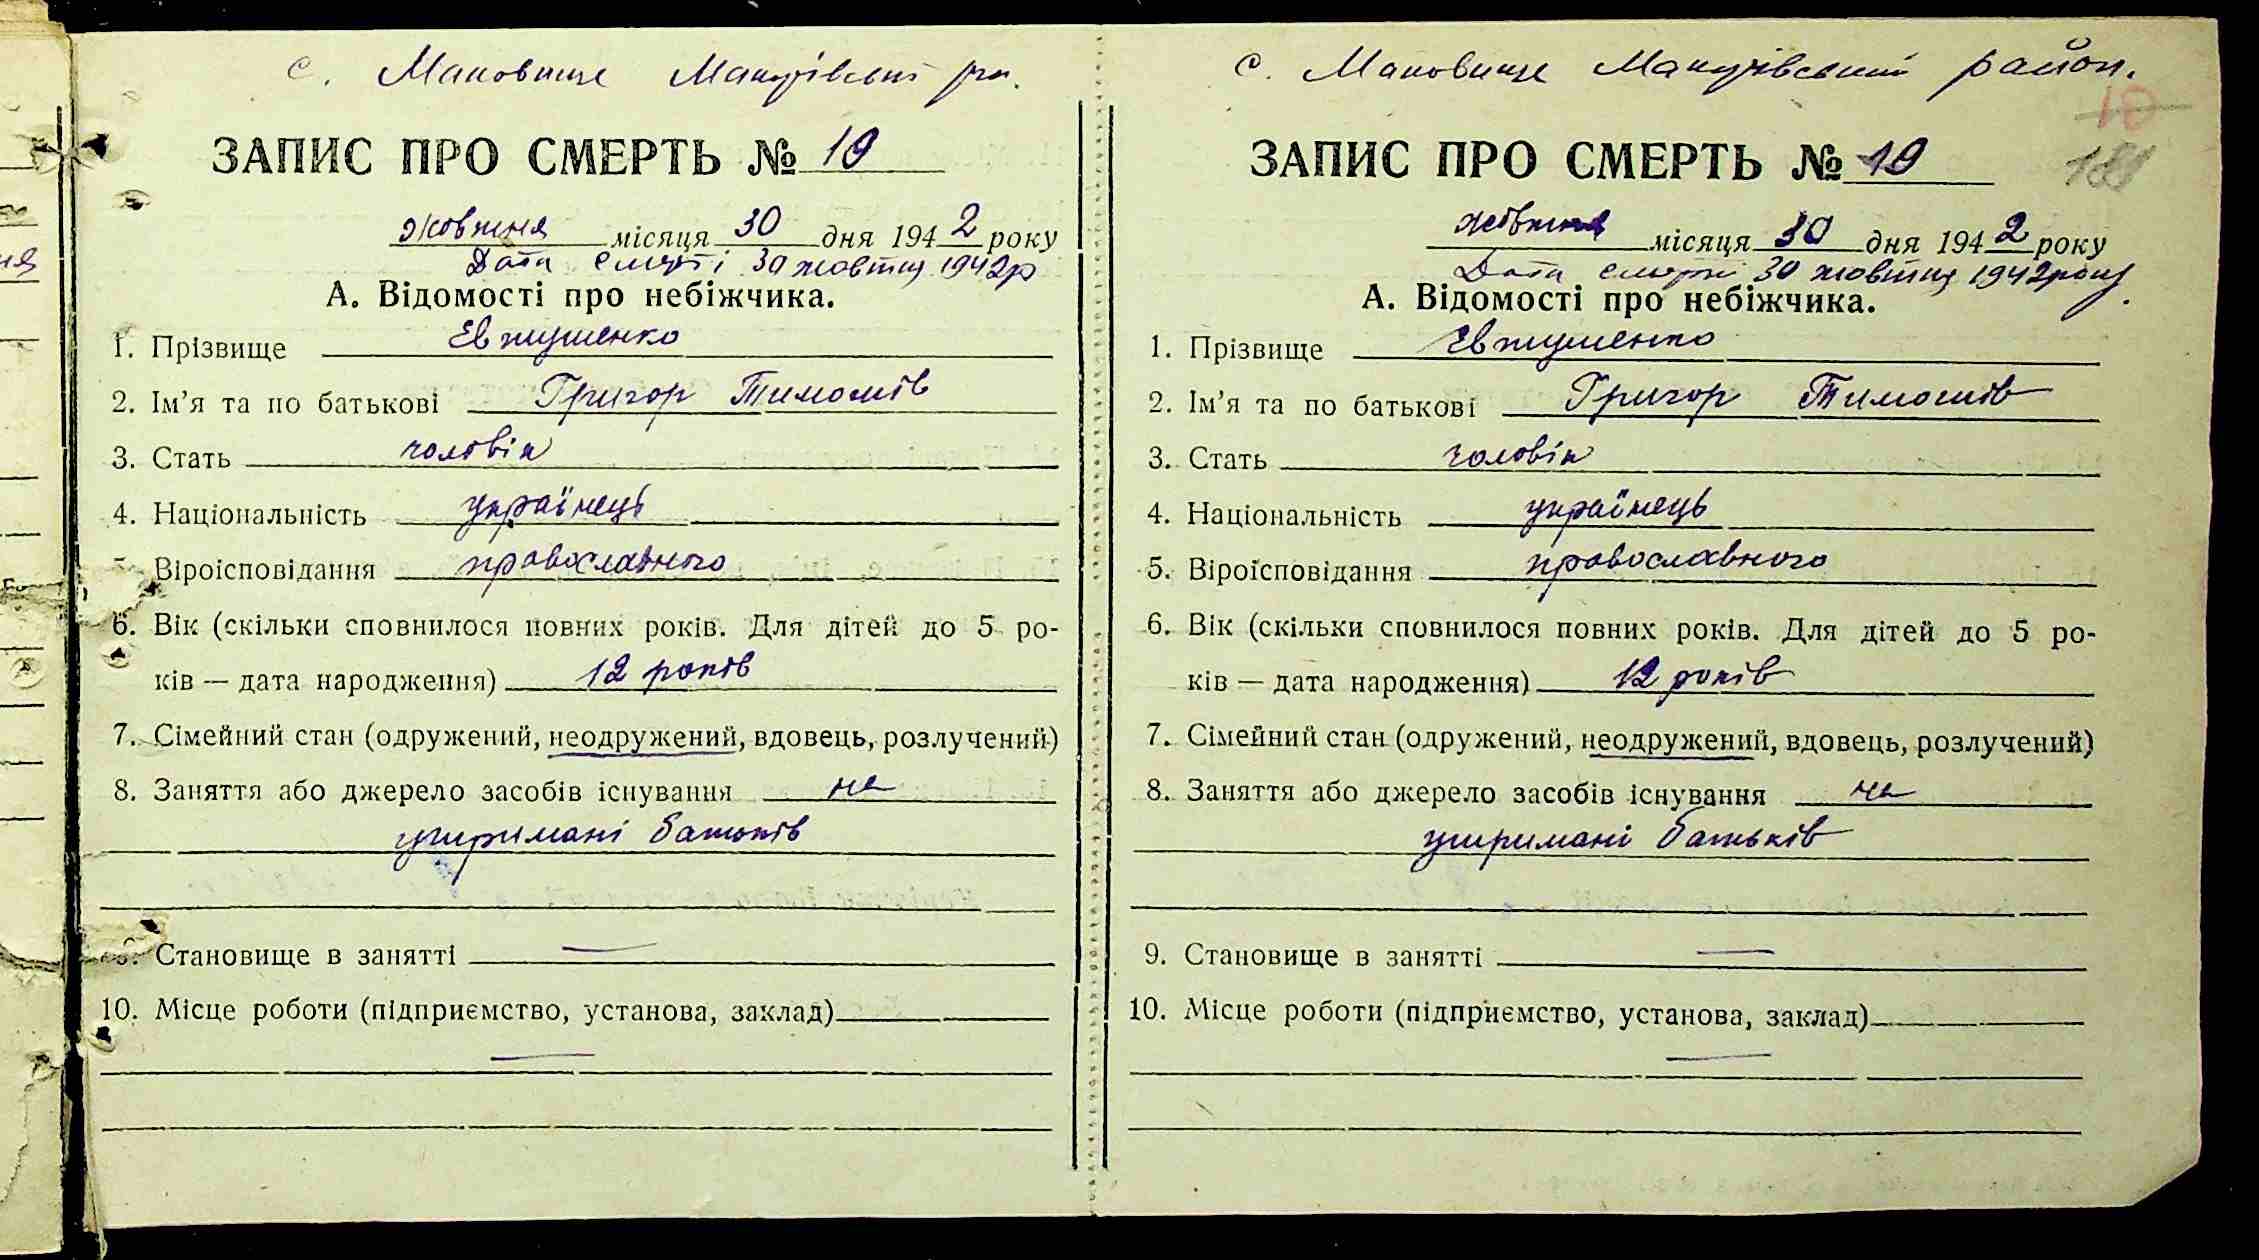 с. Маковище Макарівський рн.
ЗАПИС ПРО СМЕРТЬ № 19
Жовтня місяця 30 дня 1942 року
Дата смерті 30 жовтня 1942р
А. Відомості про небіжчика.
1. Прізвище Євтушенко
2. Ім'я та по батькові Григор Тимошів
3. Стать чоловік
4. Національність українець
Віроісповідання православного
6. Вік (скільки сповнилося повних років. Для дітей до 5 ро-
ків — дата народження) 12 років
7. Сімейний стан (одружений, неодружений, вдовець, розлучений)
8. Заняття або джерело засобів існування на
утримані батьків
9. Становище в занятті —
10. Місце роботи (підприємство, установа, заклад)
—
с. Маковище Макарівський район.
ЗАПИС ПРО СМЕРТЬ № 19
жовтня місяця 30 дня 1942 року
Дата смерти 30 жовтня 1942року
А. Відомості про небіжчика.
1. Прізвище Євтушенко
2. Ім'я та по батькові Григор Тимошів
3. Стать чоловік
4. Національність українець
5. Віроісповідання православного
6. Вік (скільки сповнилося повних років. Для дітей до 5 ро-
ків — дата народження) 12 років
7. Сімейний стан (одружений, неодружений, вдовець, розлучений)
8. Заняття або джерело засобів існування на
утримані батьків
9. Становище в занятті —
10. Місце роботи (підприємство, установа, заклад)
—